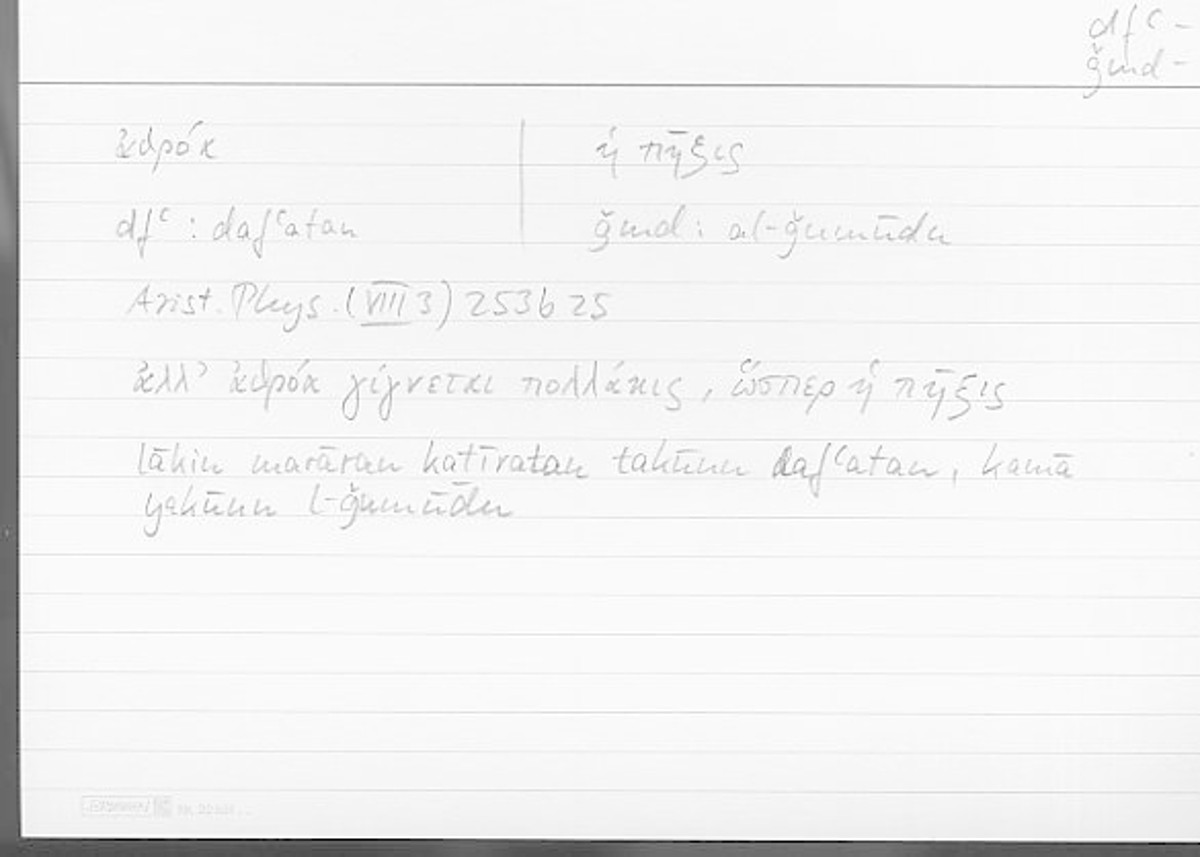 dfʿ -
ǧmd -
ἀθρόα | ἡ πῆξις
dfʿ : dafʿatan | ǧmd : al-ǧumūdu
Arist. Phys. (VIII 3) 253b 25
ἀλλ' ἀθρόα γίγνεται πολλάκις, ὥσπερ ἡ πῆξις
lākin marāran katīratan takūnu dafʿatan, kamā
yakūnu l-ǧumūdu